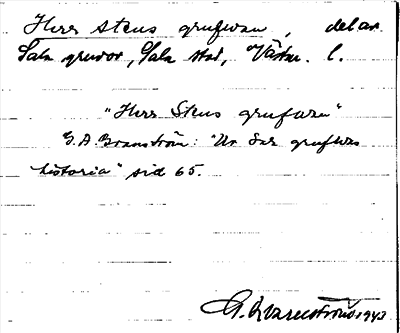 Herr Stens grufwan, del av
Sala gruvor, Sala stad, Västm. l.
"Herr Stens grufwan"
G. A. Granström: "Ur Sala grufvas
historia" sid 65.
G. Kvarnström 1943